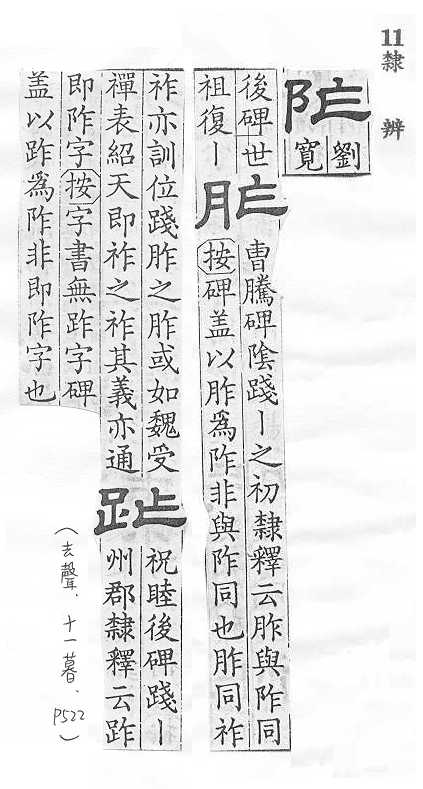 11 隸辨
阼
劉
寬
後碑世
祖復丨
胙
曹騰碑陰踐丨之初隸釋云胙與阼同
按碑盖以胙爲阼非與阼同也胙同祚
祚亦訓位踐胙之胙或如魏受
禪表紹天即祚之祚其義亦通
䟭
祝睦後碑踐丨
州郡隸釋云䟭
即阼字按字書無䟭字碑
盖以䟭爲阼非即阼字也
(去聲、十一暮、P522)